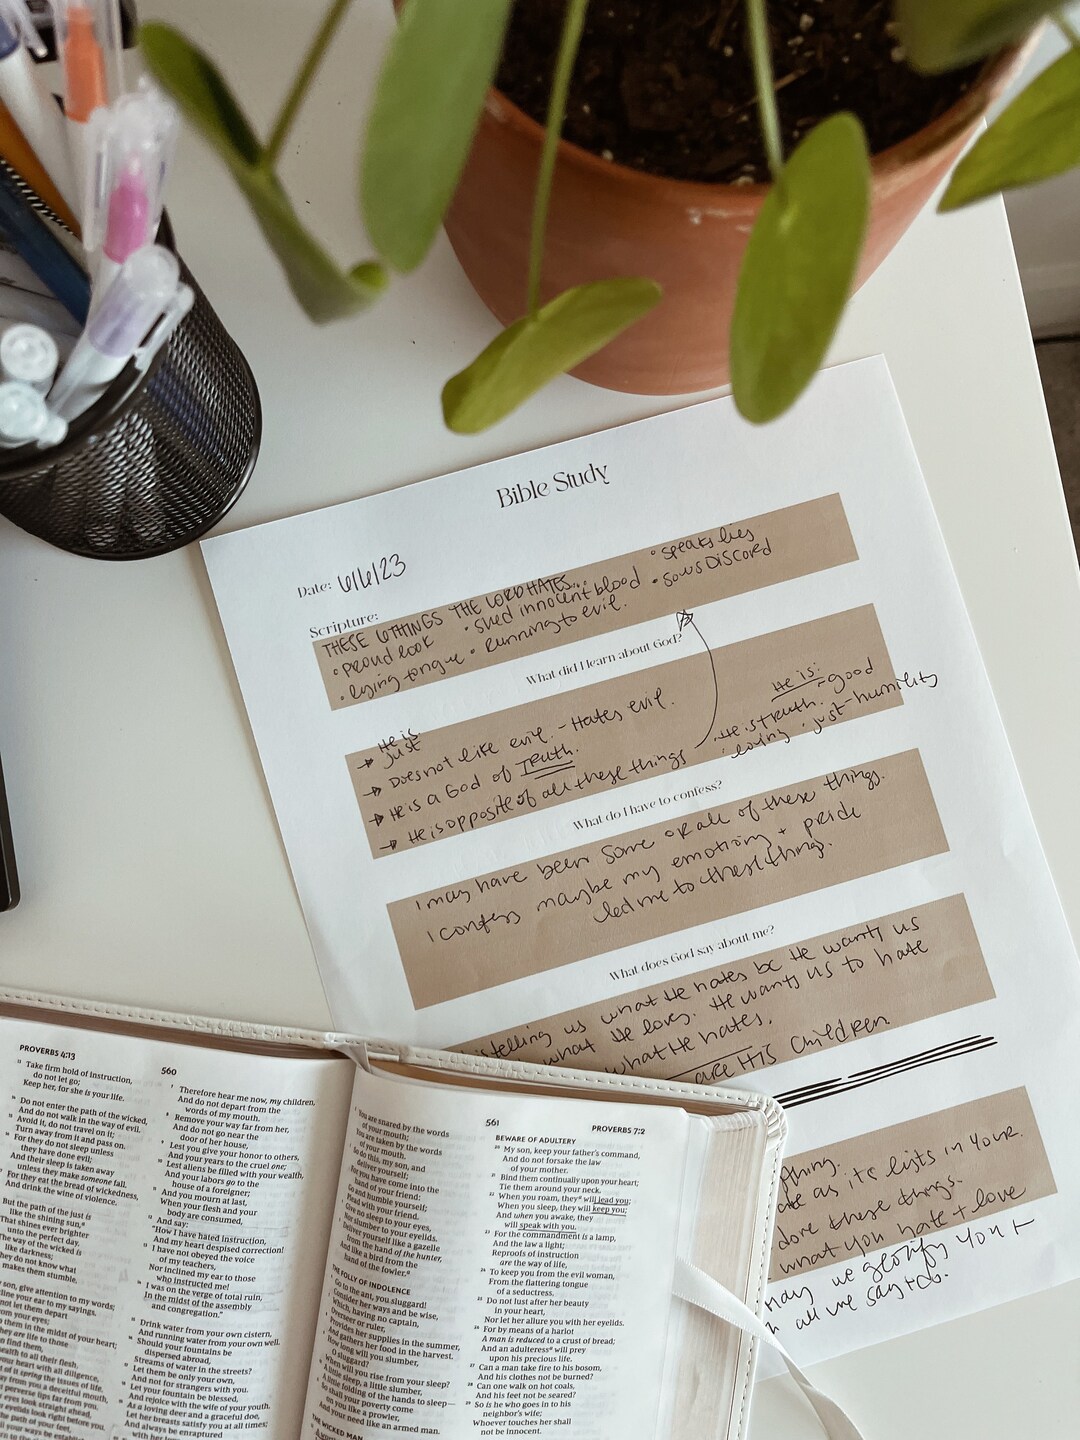 Bible Study
Date: 6/6/23
Scripture:
THESE 6 THINGS THE LORD HATES...
• proud look • shed innocent blood • speaks lies
• lying tongue • running to evil. • sows DISCORD
What did I learn about God?
He is:
→ just
→ Does not like evil. - Hates evil.
→ He is a God of TRUTH.
→ He is opposite of all these things
He is:
• He is truth. - good
• loving • just - humility
What do I have to confess?
I may have been some or all of these things.
I confess maybe my emotions + pride
led me to these things.
What does God say about me?
telling us what He hates bc He wants us
what He loves. He wants us to hate
what He hates.
are HIS Children
as its lists in Your
done these things.
what you hate + love
may we glorify You +
all we say + do.
PROVERBS 4:13
560
¹³ Take firm hold of instruction,
do not let go;
Keep her, for she is your life.
¹⁴ Do not enter the path of the wicked,
And do not walk in the way of evil.
¹⁵ Avoid it, do not travel on it;
Turn away from it and pass on.
¹⁶ For they do not sleep unless
they have done evil;
And their sleep is taken away
unless they make someone fall.
¹⁷ For they eat the bread of wickedness,
And drink the wine of violence.
But the path of the just is
like the shining sun,
That shines ever brighter
unto the perfect day.
The way of the wicked is
like darkness;
They do not know what
makes them stumble.
son, give attention to my words;
line your ear to my sayings.
not let them depart
from your eyes;
them in the midst of your heart;
they are life to those
find them,
health to all their flesh.
your heart with all diligence,
of it spring the issues of life.
away from you a deceitful mouth,
perverse lips far from you.
eyes look straight ahead,
your eyelids look right before you.
the path of your feet,
⁷ Therefore hear me now, my children,
And do not depart from the
words of my mouth.
⁸ Remove your way far from her,
And do not go near the
door of her house,
⁹ Lest you give your honor to others,
And your years to the cruel one;
¹⁰ Lest aliens be filled with your wealth,
And your labors go to the
house of a foreigner;
¹¹ And you mourn at last,
When your flesh and your
body are consumed,
¹² And say:
"How I have hated instruction,
And my heart despised correction!
¹³ I have not obeyed the voice
of my teachers,
Nor inclined my ear to those
who instructed me!
¹⁴ I was on the verge of total ruin,
In the midst of the assembly
and congregation."
¹⁵ Drink water from your own cistern,
And running water from your own well.
¹⁶ Should your fountains be
dispersed abroad,
Streams of water in the streets?
¹⁷ Let them be only your own,
And not for strangers with you.
¹⁸ Let your fountain be blessed,
And rejoice with the wife of your youth.
¹⁹ As a loving deer and a graceful doe,
Let her breasts satisfy you at all times;
And always be enraptured
with her
561
PROVERBS 7:2
² You are snared by the words
of your mouth;
You are taken by the words
of your mouth.
³ So do this, my son, and
deliver yourself;
For you have come into the
hand of your friend:
Go and humble yourself;
Plead with your friend.
⁴ Give no sleep to your eyes,
Nor slumber to your eyelids.
⁵ Deliver yourself like a gazelle
from the hand of the hunter,
And like a bird from the
hand of the fowler.
THE FOLLY OF INDOLENCE
⁶ Go to the ant, you sluggard!
Consider her ways and be wise,
⁷ Which, having no captain,
Overseer or ruler,
⁸ Provides her supplies in the summer,
And gathers her food in the harvest.
⁹ How long will you slumber,
O sluggard?
When will you rise from your sleep?
¹⁰ A little sleep, a little slumber,
A little folding of the hands to sleep—
¹¹ So shall your poverty come
on you like a prowler,
And your need like an armed man.
THE WICKED MAN
BEWARE OF ADULTERY
²⁰ My son, keep your father's command,
And do not forsake the law
of your mother.
²¹ Bind them continually upon your heart;
Tie them around your neck.
²² When you roam, they will lead you;
When you sleep, they will keep you;
And when you awake, they
will speak with you.
²³ For the commandment is a lamp,
And the law a light;
Reproofs of instruction
are the way of life,
²⁴ To keep you from the evil woman,
From the flattering tongue
of a seductress.
²⁵ Do not lust after her beauty
in your heart,
Nor let her allure you with her eyelids.
²⁶ For by means of a harlot
A man is reduced to a crust of bread;
And an adulteress will prey
upon his precious life.
²⁷ Can a man take fire to his bosom,
And his clothes not be burned?
²⁸ Can one walk on hot coals,
And his feet not be seared?
²⁹ So is he who goes in to his
neighbor's wife;
Whoever touches her shall
not be innocent.